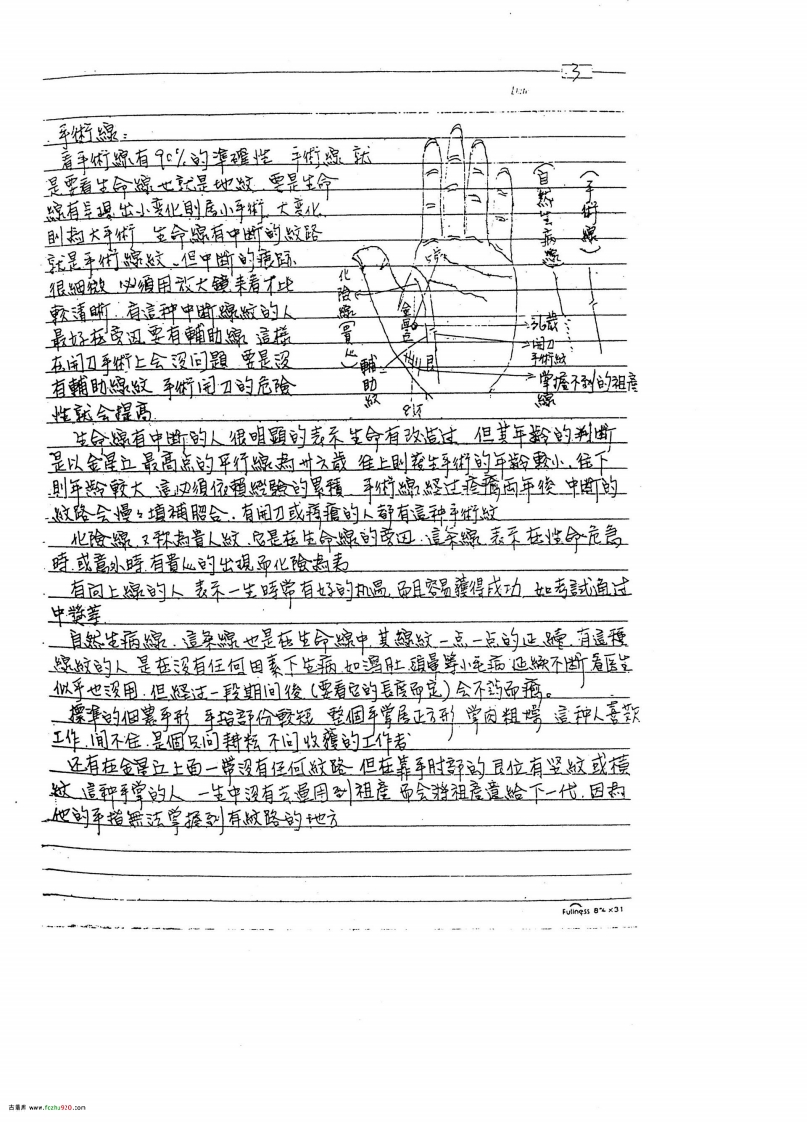 3
手術線：
看手術線有90%的準確性 手術線 就
是要看生命線也就是地紋.要是生命
線有呈現出小变化則屬小手術.大变化
則為大手術 生命線有中断的紋路
就是手術線紋.但中断的痕跡
很細微 必須用放大鏡來看才比
較清晰.有這种中断線紋的人
最好在旁边要有輔助線 這樣
在開刀手術上会沒問題 要是沒
有輔助線紋 手術開刀的危險
性就会提高
(手術線)
(自然生病線)
化險線(貴人)
金星丘
輔助紋
艮
36歲
開刀手術紋
掌握不到的祖產線
生命線有中断的人 很明顯的表示生命有改造过 但其年齡的判断
是以金星丘最高点的平行線為卅六歲 往上則發生手術的年齡較小.往下
則年齡較大 這必須依賴經驗的累積 手術線經过痊癒兩年後 中断的
紋路会慢々填補脗合.有開刀或痔瘡的人都有這种手術紋
化險線 又称為貴人紋.它是在生命線的旁边.這条線 表示在性命危急
時.或意外時.有貴人的出現而化險為夷
有向上線的人 表示一生時常有好的机遇 而且容易獲得成功 如考試通过
中獎等
自然生病線.這条線也是在生命線中 其線紋一点一点的延續.有這種
線紋的人 是在沒有任何因素下生病.如瀉肚 頭暈等小毛病 延續不断 看医生
似乎也沒用.但経过一段期间後(要看它的長度而定)会不药而癒。
標準的田農手形 手指部份較短 整個手掌居正方形 掌肉粗燥 這种人喜欢
工作.闲不住.是個只问耕耘 不问收穫的工作者
还有在金星丘上面一帶沒有任何紋路.但在靠手肘部的艮位有竖紋或橫
紋 這种手掌的人 一生中沒有去運用到祖產 而会將祖產遺給下一代.因為
他的手指無法掌握到有紋路的地方
Fullness 8¾ x31
古籍库 www.fczhu920.com